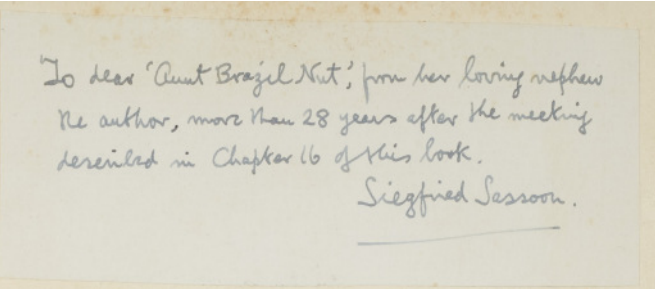 To dear 'Aunt Brazil Nut', from her loving nephew
the author, more than 28 years after the meeting
described in Chapter 16 of this book.
Siegfried Sassoon.